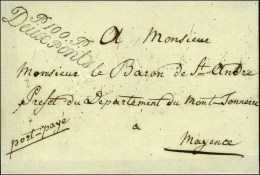 P.100.P.
Deux-Ponts
A Monsieur
Monsieur le Baron de St. André
Prefet du Département du Mont-Tonnerre
à
Mayence
port-payé